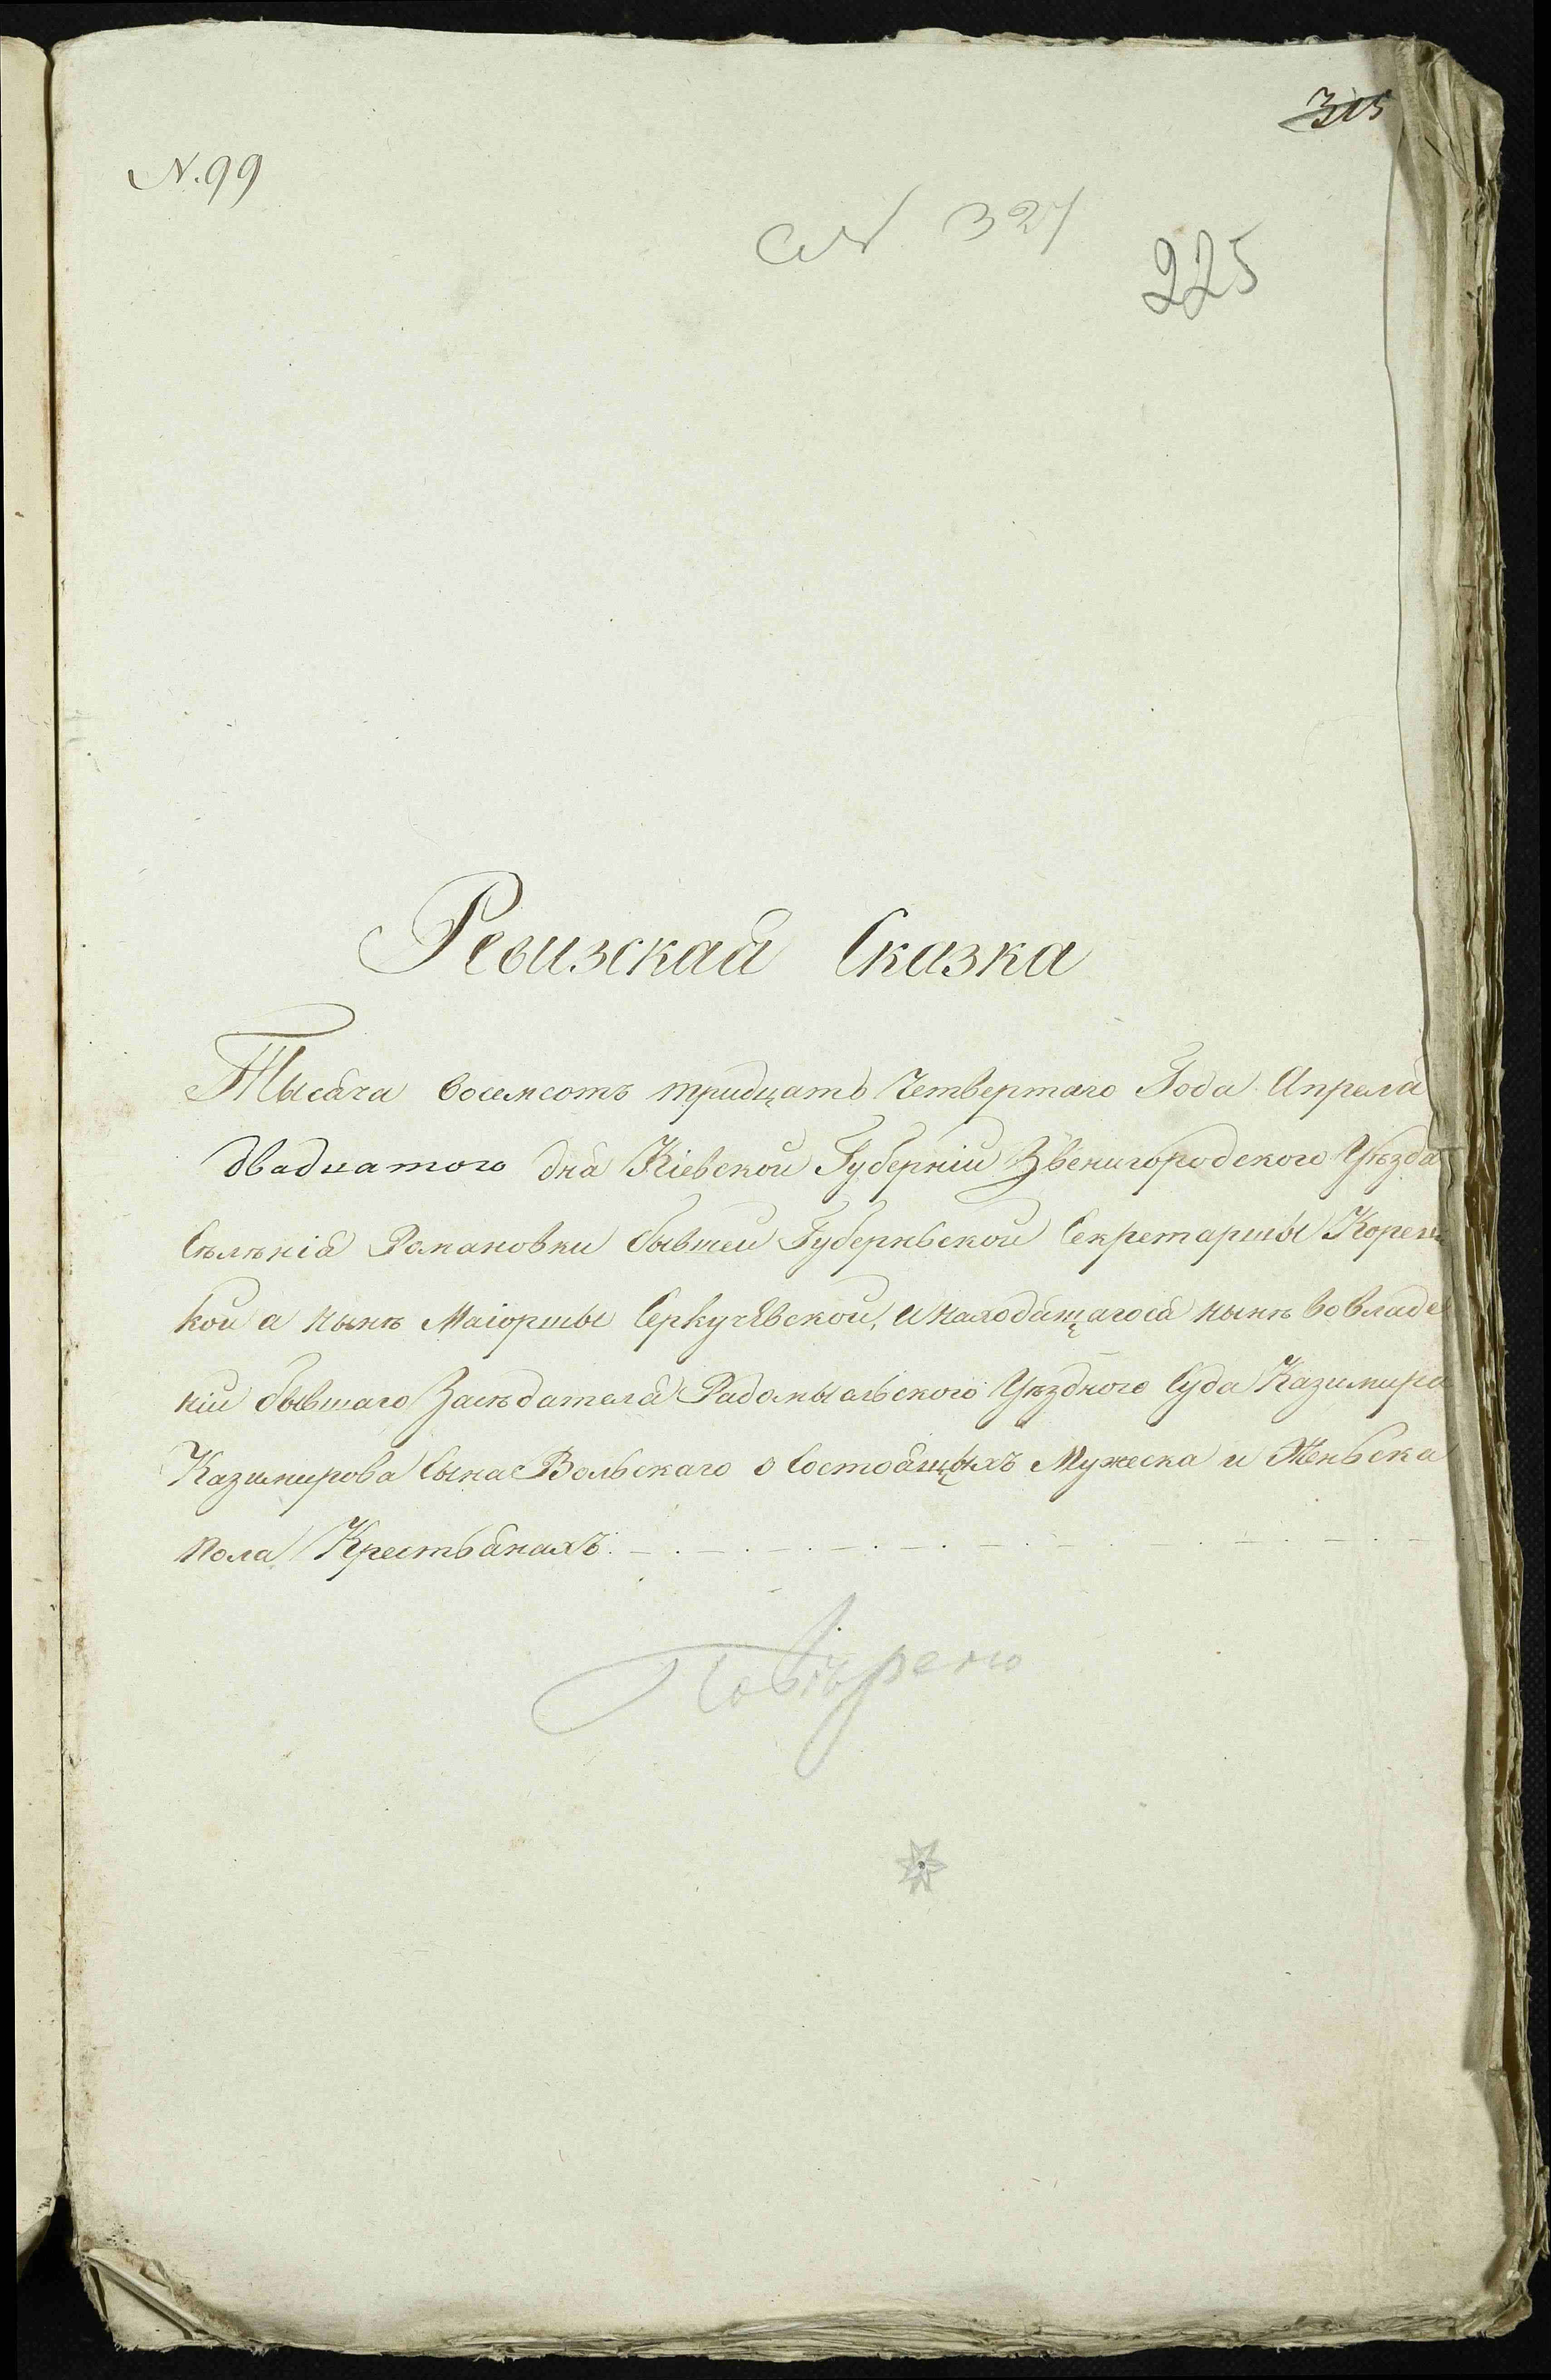 315
N. 99
327
225
Ревизская Сказка
Тысяча восемсотъ тридцать Четвертаго Года Апреля
двадцатого дня Кіевской Губерніи Звенигородского Уѣзда
Сѣлѣнія Романовки бывшей Губерньской Секретаршы
кой а нынѣ Маіоршы и находящагося нынѣ во владе
ніи бывшаго Засѣдателя Радомысльского Уѣздного Суда Казимира
Казимирова Сына Вольскаго о Состоящыхъ Мужеска и Женьска
пола Крестьянахъ.
Повѣрено